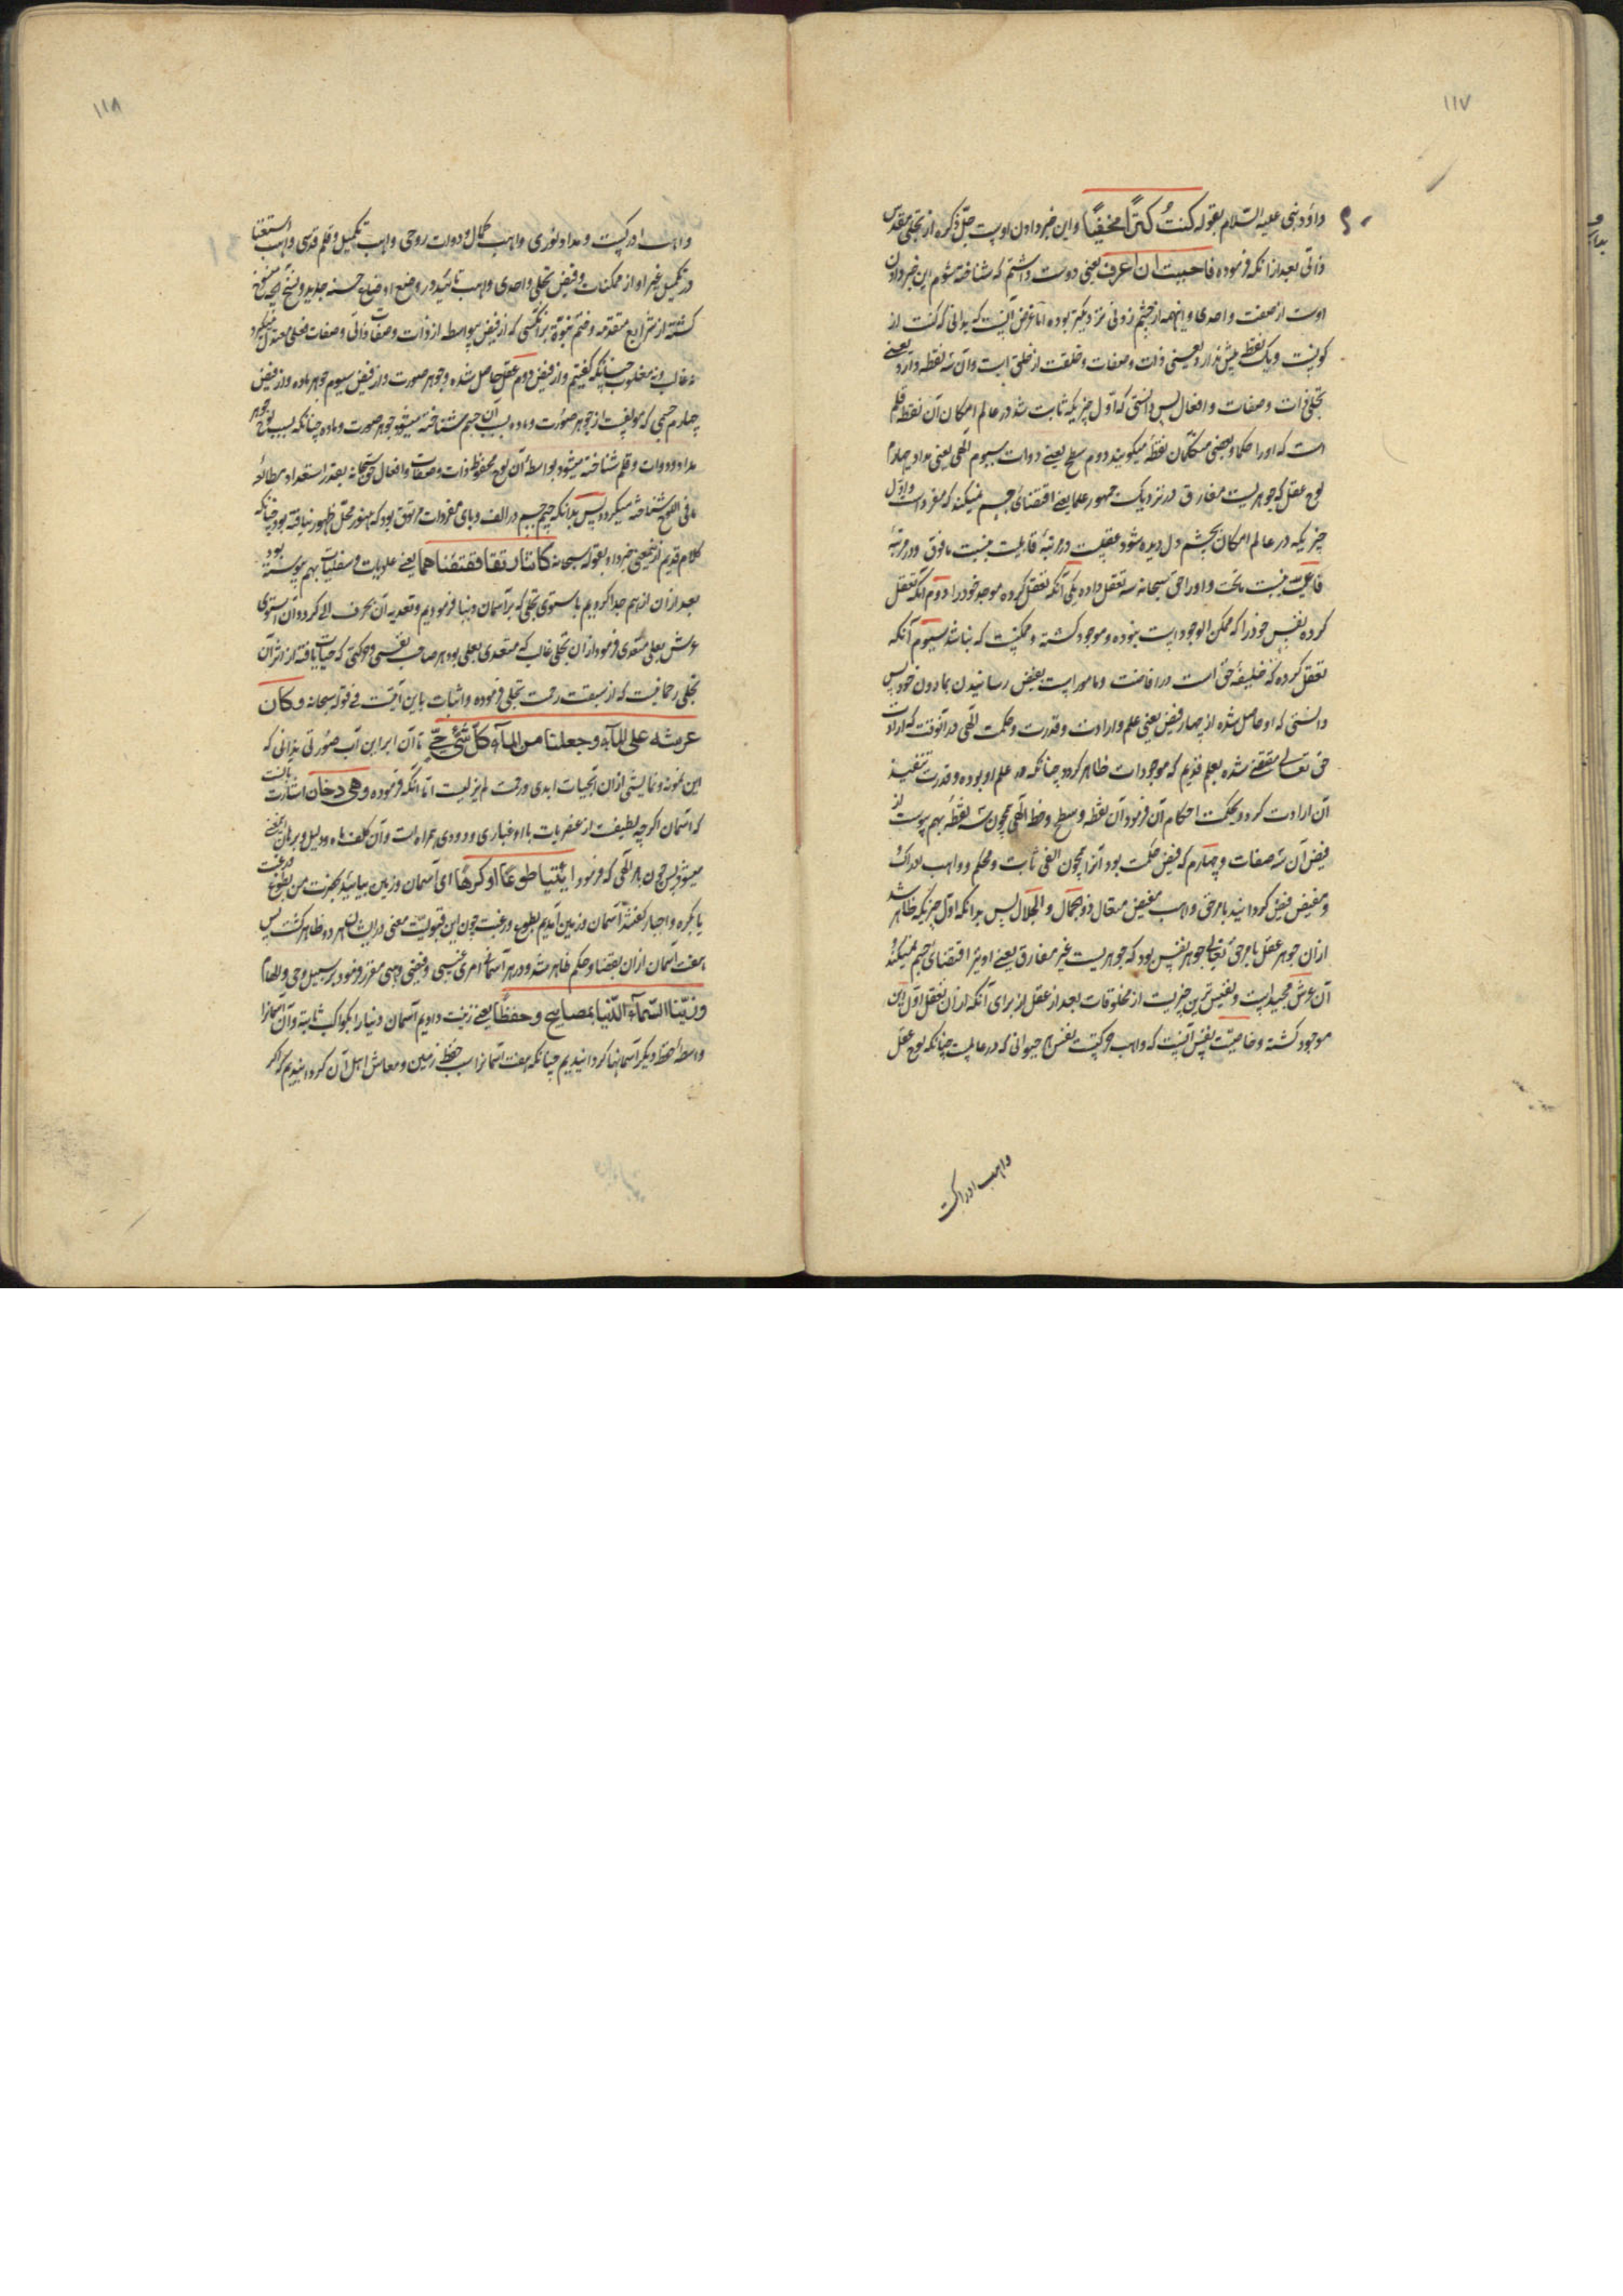 ۱۱۷
داود نبی علیه السّلام بقوله کنتُ کنزًا مخفیًا و این خبر دادن اوست جلّ ذکره از تجلی مقدس
ذاتی بعد از انکه فرموده فاحببت ان اعرف یعنی دوست داشتم که شناخته شوم این خبر دادن
اوست از صفت واحدی و اما غرض اینست که بدانی که کنت از
کونیت و یک نقطه بیش ندارد یعنی ذات و صفات و خلقت از خلق است و آن سه نقطه دارد یعنی
تجلی ذات و صفات و افعال پس دانستی که اول چیزیکه ثابت شد در عالم امکان آن نقطه قلم
است که او را حکما و بعضی متکلمان نقطه میگویند دوم سطح یعنی دوات سیوم الهی یعنی مداد چهارم
لوح عقل که جوهریست مفارق در نزدیک جمهور علما یعنی اقتضای جسم نمیکند که مفرد است و اول
چیزیکه در عالم امکان بچشم دل دیده شود عقلست در مرتبهٔ قابلیت نسبت مافوق و در مرتبهٔ
فاعلیت نسبت ماتحت و او را حق سبحانه سه تعقل داده یکی آنکه تعقل کرده موجد خود را دوم آنکه تعقل
کرده نفس خود را که ممکن الوجود است نبوده و موجود گشته و ممکنست که نباشد سیوم آنکه
تعقل کرده که خلیفهٔ حق است در افاضت و مامور است بفیض رسانیدن بمادون خود پس
دانستی که او حاصل شده از چهار فیض یعنی علم و ارادت و قدرت و حکمت الهی در آنوقت که ارادت
حق تعالی مقتضی شده بعلم قدیم که موجودات ظاهر گردد چنانکه در علم او بوده و قدرت تنفیذ
آن ارادت کرد و حکمت احکام آن فرمود آن نقطه و سطح و خط الهی همچون سه نقطه بهم پیوست از
فیض آن سه صفات و چهارم که فیض حکمت بود آنرا همچون الفی ثابت و محکم و واهب ادراک
و مفیض فیض گردانید بامر حق واهب مفیض متعال ذو الجمال و الجلال پس بدانکه اول چیزیکه ظاهر شد
از آن جوهر عقل بامر حق تعالی جوهر نفس بود که جوهریست غیر مفارق یعنی او نیز اقتضای جسم میکند
آن عرش مجید است و نفیس ترین چیزیست از مخلوقات بعد از عقل از برای آنکه از آن تعقل اول این
موجود گشته و خاصیت نفس آنست که واهب حرکتست بنفس حیوانی که در عالمست چنانکه لوح عقل
واهب ادراکست
۱۱۸
واهب ادراکست و مداد نوری واهب کمال و دوات روحی واهب تکمیل و قلم قدسی واهب استغنا
در تکمیل غیر او از ممکنات و فیض تجلی واحدی واهب تائید در وضع اوضاع حسنه جدید و نسخ آنچه منسوخ
گشته از شرایع متقدمه و ختم نبوة بر آنکسی که از فیض بیواسطه از ذات و صفات ذاتی و صفات فعلی معتدل
نه غالب و نه مغلوب چنانکه گفتیم و از فیض دوم عقل حاصل شده و جوهر صورت و از فیض سیوم جوهر ماده و از فیض
چهارم جسمی که مؤلفست از جوهر صورت و ماده بسبب آن جسم شناخته میشود جوهر صورت و ماده چنانکه بسبب لوح جوهر
مداد و دوات و قلم شناخته میشود بواسطهٔ آن لوح محفوظ ذات و صفات و افعال حق سبحانه بقدر استعداد مطالعه
ما فی اللوح شناخته میگردد پس بدانکه جیم جسم در الف و بای مفردات مرتوق بود که هنوز محل ظهور نیافته بود چنانکه
کلام قدیم ازینمعنی خبر داد بقوله سبحانه کانتا رتقا ففتقناهما یعنی علویات و سفلیات بهم پیوسته بود
بعد از آن از هم جدا کردیم باستوی تجلی که بر آسمان دنیا فرمودیم و تعدیه آن بحرف الی کرد و آن استوی
عرش بعلی متعدی فرمود از آن تجلی غالب که متعدی بعلی بود هر صاحب نفسی و حرکتی که حیات یافته از اثر آن
تجلی رحمانیست که از سبقت رحمت تجلی فرموده و اثبات باین آیتست فی قوله سبحانه وکان
عرشه علی المآء وجعلنا من المآء کل شیء حی تا آن ابر این آب صورتی بدانی که
این نمونه و نمایشی از آن تجلیات ابدی و رحمت لم یزلیست اتا انکه فرموده وهی دخان اشارت بآنست
که آسمان اگرچه لطیفست از عنصریات با او غباری و دودی همراه است و آن کلف ماه و دلیل و برهان یعنی
میشود پس چون امر الهی که فرمود ائتیا طوعًا اوکرهًا ای آسمان و زمین بیائید بحضرت من بطوع و رغبت
یا بکره و اجبار گفتند آسمان و زمین آمدیم بطوع و رغبت چون این قبولیت معنی در ایشان هر دو ظاهر گشت پس
هفت آسمان از آن بقضا و حکم ظاهر شد و در هر آسمان امری غیبی و فیضی وحی مقرر فرمود بر سبیل وحی و الهام
وزینا السّمآء الدّنیا بمصابیح وحفظًا یعنی زینت دادیم آسمان دنیا را بکواکب ثابته و آن آسمانرا
واسطهٔ حفظ دیگر آسمانها گردانیدیم چنانکه هفت آسمانرا سبب حفظ زمین و معاش اهل آن گردانیدیم که اگر